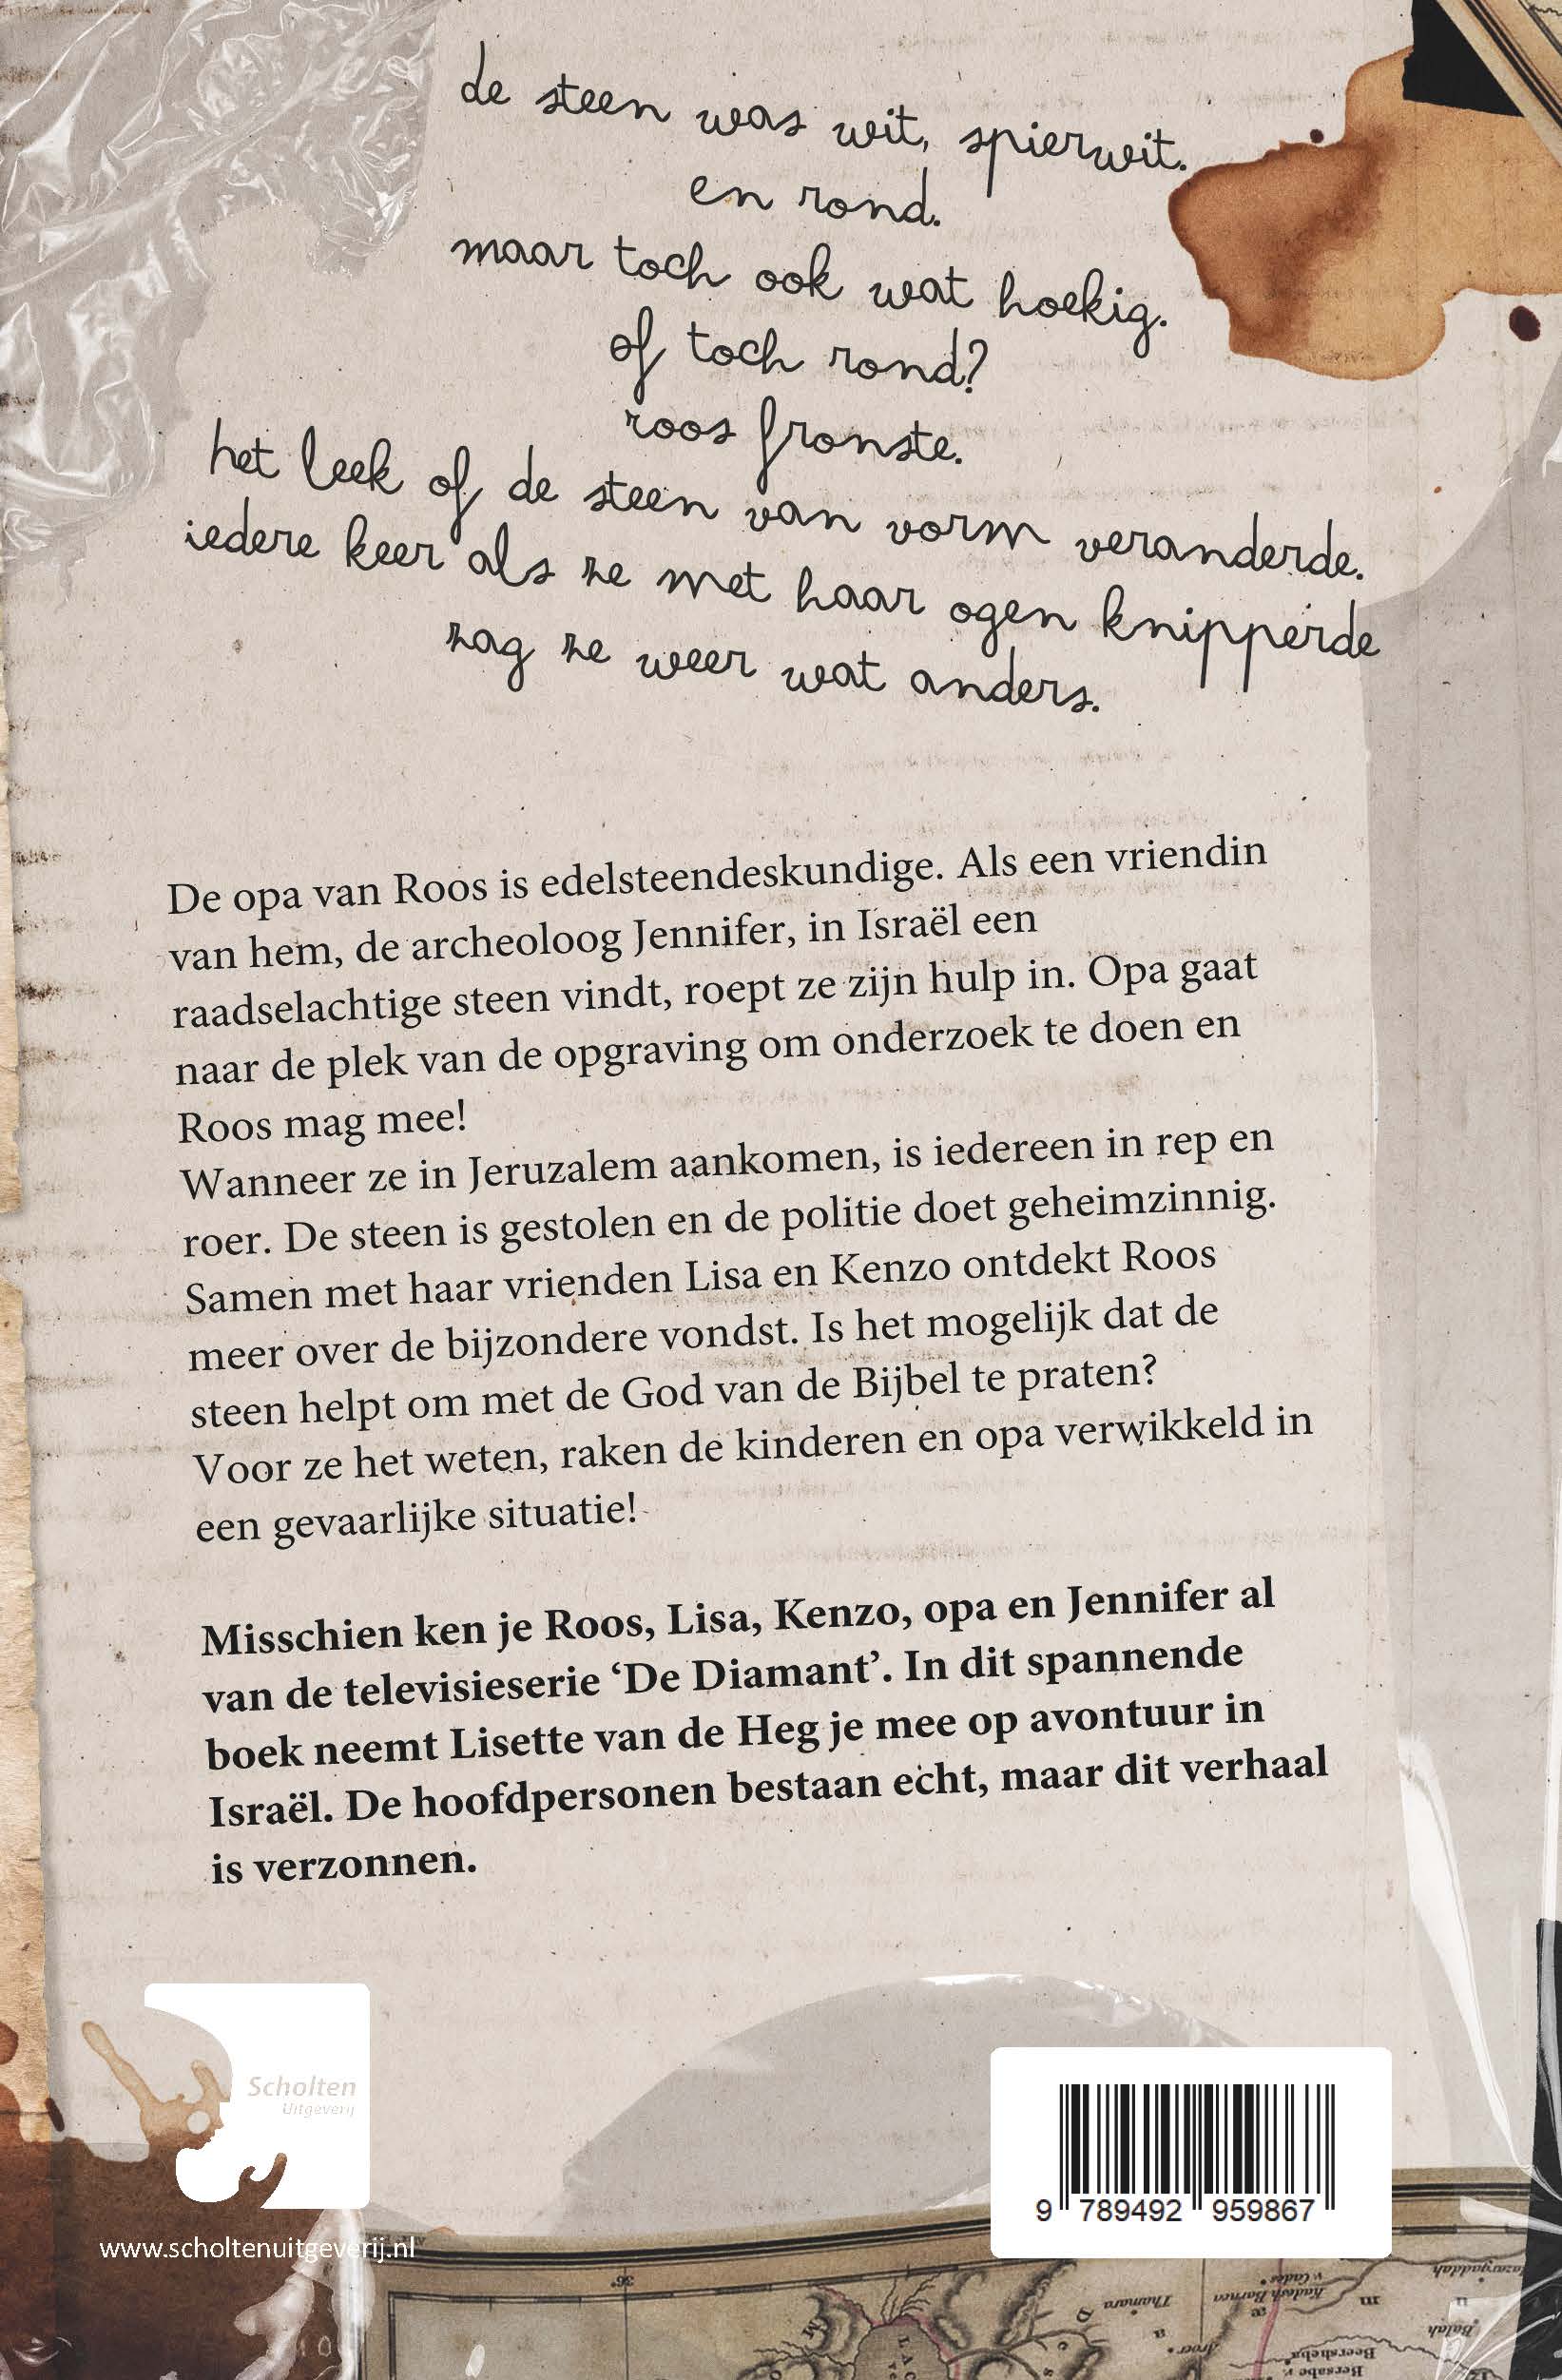 de steen was wit, spierwit.
en rond.
maar toch ook wat hoekig.
of toch rond?
roos fronste.
het leek of de steen van vorm veranderde.
iedere keer als ze met haar ogen knipperde
zag ze weer wat anders.
De opa van Roos is edelsteendeskundige. Als een vriendin
van hem, de archeoloog Jennifer, in Israël een
raadselachtige steen vindt, roept ze zijn hulp in. Opa gaat
naar de plek van de opgraving om onderzoek te doen en
Roos mag mee!
Wanneer ze in Jeruzalem aankomen, is iedereen in rep en
roer. De steen is gestolen en de politie doet geheimzinnig.
Samen met haar vrienden Lisa en Kenzo ontdekt Roos
meer over de bijzondere vondst. Is het mogelijk dat de
steen helpt om met de God van de Bijbel te praten?
Voor ze het weten, raken de kinderen en opa verwikkeld in
een gevaarlijke situatie!
Misschien ken je Roos, Lisa, Kenzo, opa en Jennifer al
van de televisieserie ‘De Diamant’. In dit spannende
boek neemt Lisette van de Heg je mee op avontuur in
Israël. De hoofdpersonen bestaan echt, maar dit verhaal
is verzonnen.
Scholten
Uitgeverij
www.scholtenuitgeverij.nl
9 789492 959867
36°
Thamara
Kadesh Barnea
Balah
Beersheba